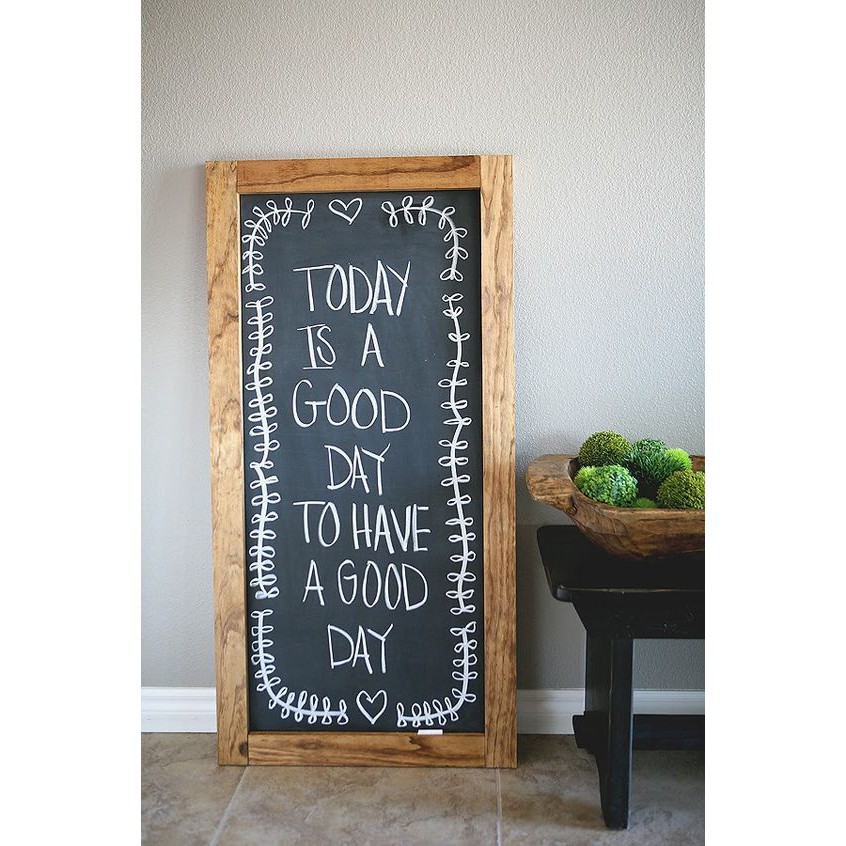 TODAY
IS A
GOOD
DAY
TO HAVE
A GOOD
DAY